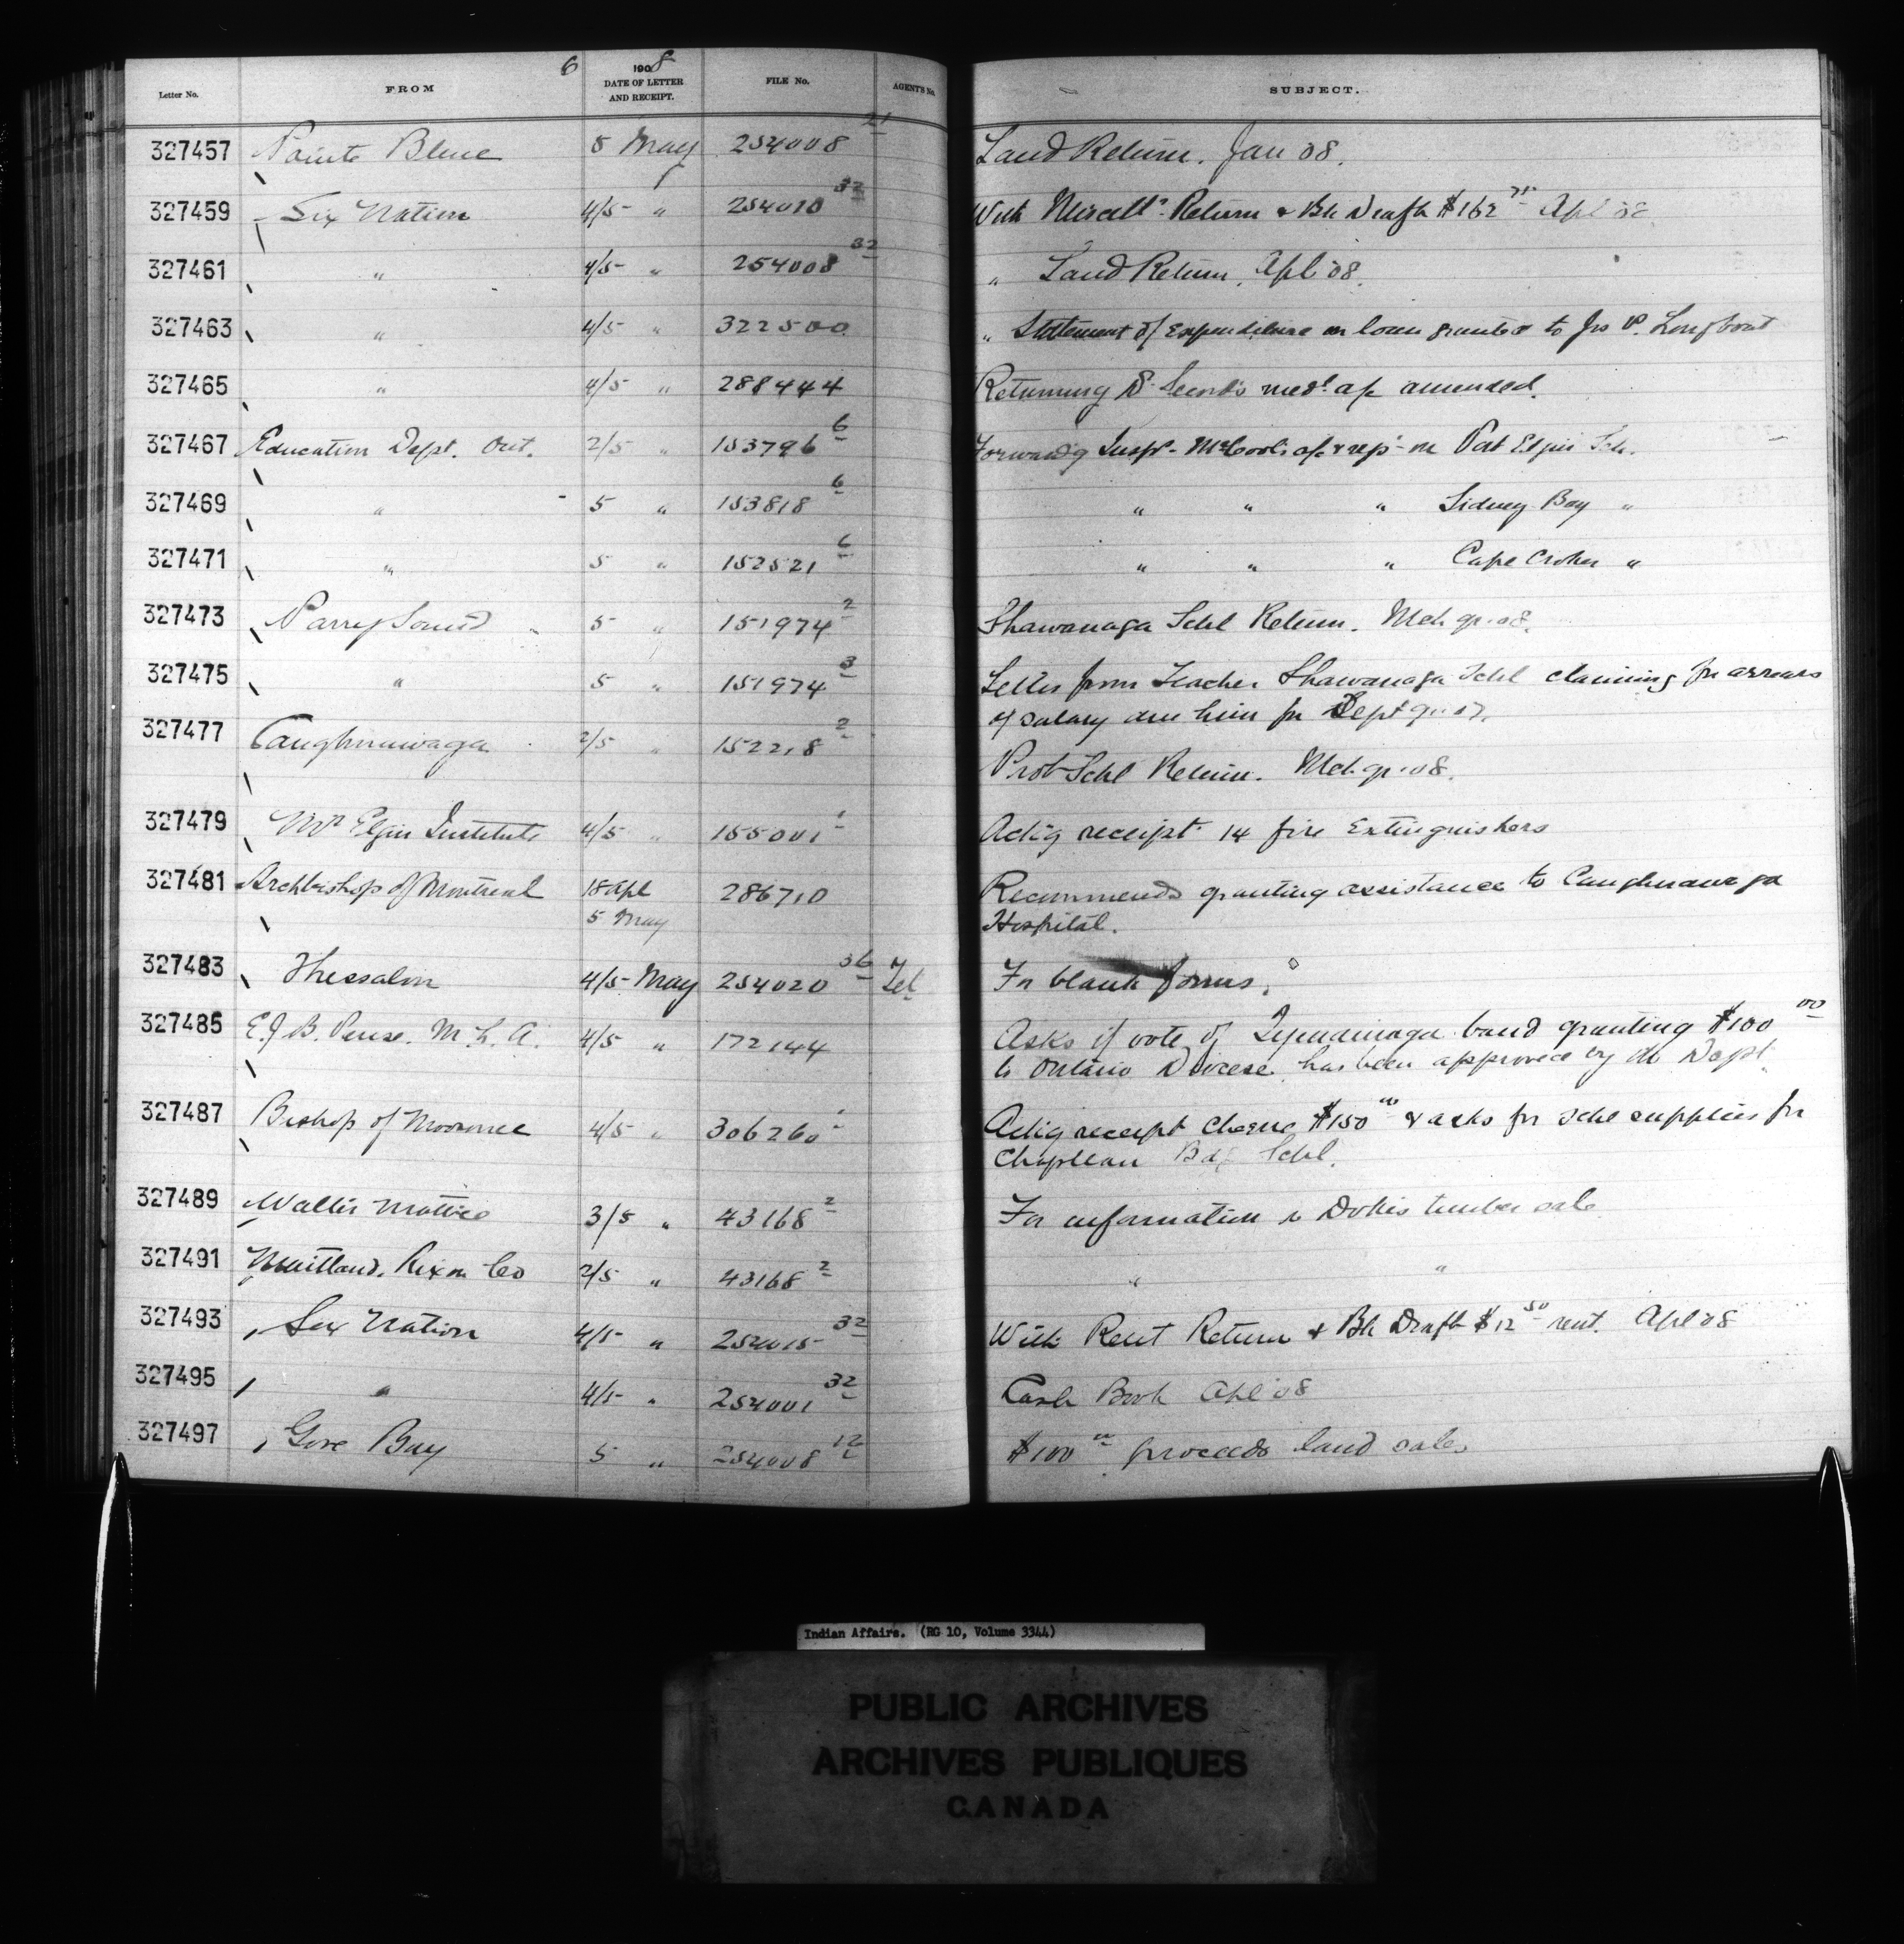 6
Letter No. FROM 1908 DATE OF LETTER AND RECEIPT. FILE No. AGENT'S No. SUBJECT.
327457 Pointe Bleue 5 May 254008 21 Land Return. Jan 08.
327459 Six Nation 4/5 " 254010 32 With Miscell. Return & Bk Draft $162 75 Apl 08
327461 " 4/5 " 254008 32 " Land Return. Apl 08.
327463 " 4/5 " 322500 " Statement of expenditure on loan granted to Jno P. Longboat
327465 " 4/5 " 288444 Returning Dr Secord's medl a/c amended.
327467 Education Dept. Ont. 2/5 " 153796 6 Forwardg Inspr McCool's a/c & rep on Port Elgin Sch.
327469 " 5 " 153818 6 " " " Sidney Bay "
327471 " 5 " 152521 6 " " " Cape Croker "
327473 Parry Sound 5 " 151974 2 Shawanaga Schl Return. Mch qr. 08.
327475 " 5 " 151974 3 Letter from Teacher Shawanaga Schl claiming for arrears
of salary due him for Sept qr. 07.
327477 Caughnawaga 2/5 " 152218 2 Prot Schl Return. Mch qr. 08.
327479 Mt Elgin Institute 4/5 " 155001 1 Ackg receipt 14 fire Extinguishers
327481 Archbishop of Montreal 18 Apl 286710 Recommends granting assistance to Caughnawaga
5 May Hospital.
327483 Thessalon 4/5 May 254020 36 Tel For blank forms.
327485 E.J.B. Pense. M.L.A. 4/5 " 172144 Asks if vote of Tyendinaga band granting $100 00
to Ontario Diocese has been approved by the Dept.
327487 Bishop of Moosonee 4/5 " 306260 1 Ackg receipt cheque $150 00 & asks for schl supplies for
Chapleau Bdg Schl.
327489 Walter Mattice 3/5 " 43168 2 For information re Dokis timber sale
327491 Maitland. Rixon Co 2/5 " 43168 2 " "
327493 Six Nation 4/5 " 254015 32 With Rent Return & Bk Draft $12 50 rent. Apl 08
327495 " 4/5 " 254001 32 Cash Book Apl 08
327497 Gore Bay 5 " 254008 12 $100 00 proceeds land sales
Indian Affairs. (RG 10, Volume 3344)
PUBLIC ARCHIVES
ARCHIVES PUBLIQUES
CANADA